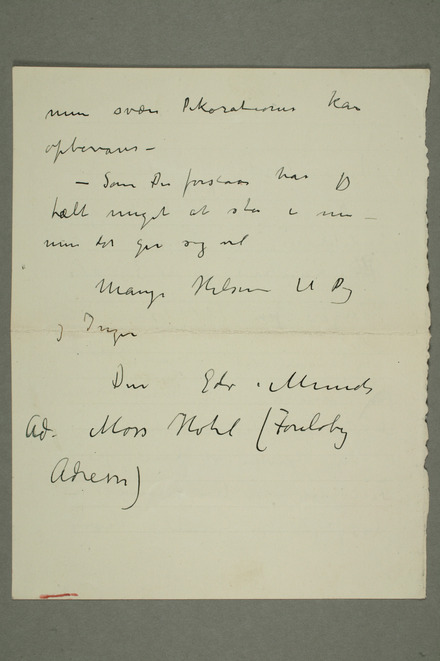 min svære Dekorationer kan
opbevares –
– Som Du forstaar har jeg
meget at staa i nu –
men det gir sig vel
Mange Hilsener til Dig
og Inger
Din Edv. Munch
Ad. Moss Hotel (Foreløbig
Adresse)